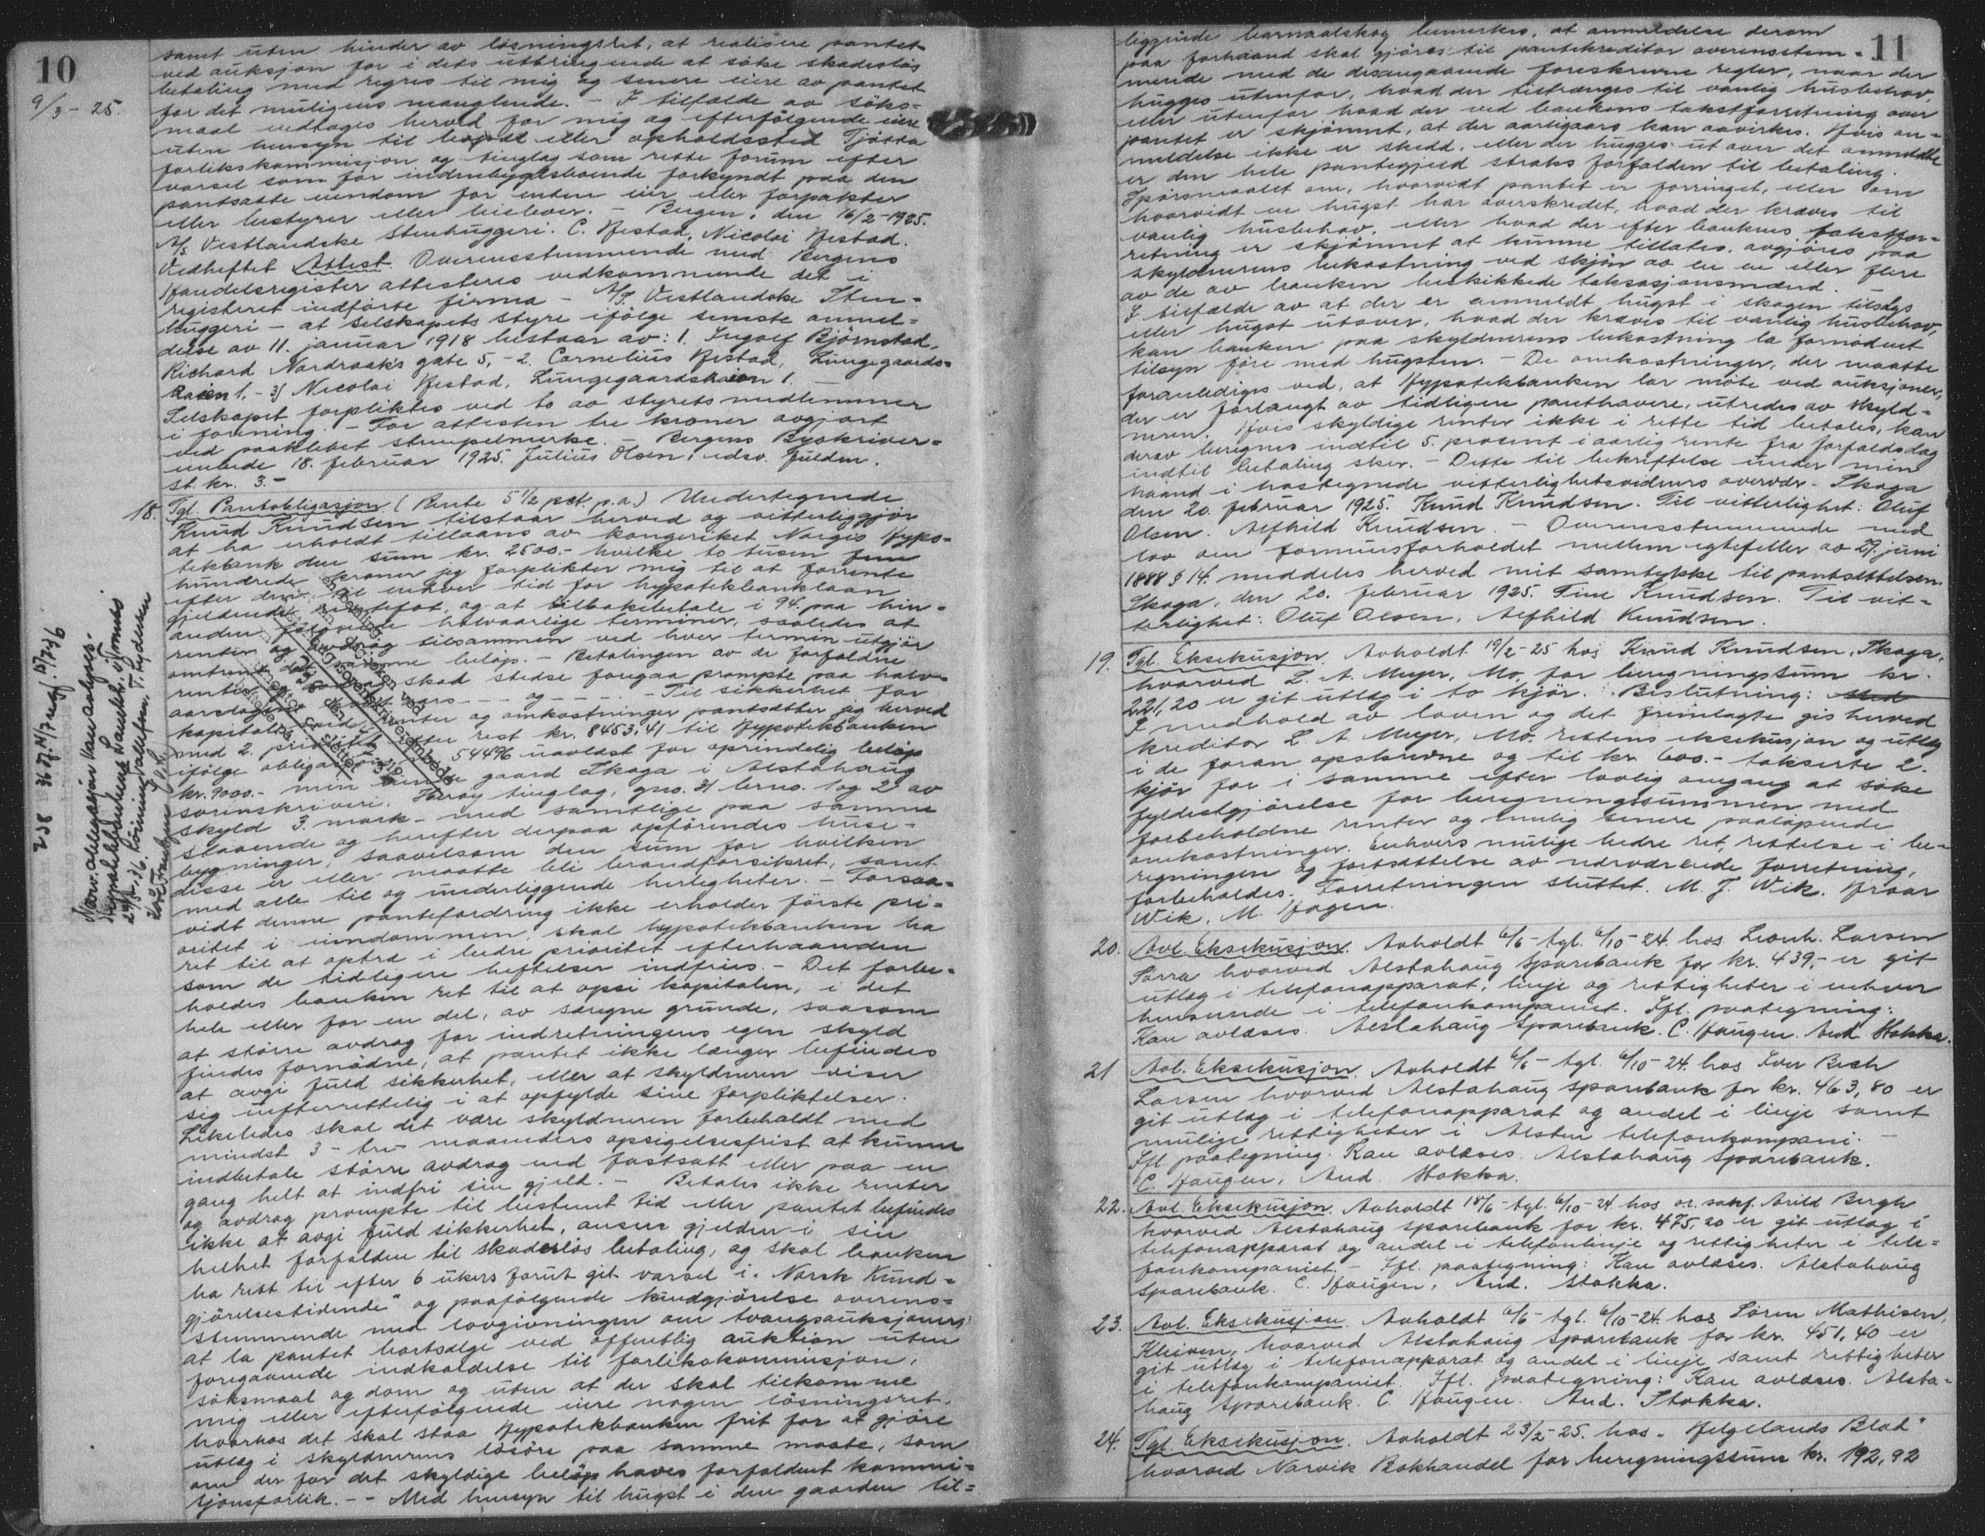 10
9/3 - 25.
samt uten hinder av løsningsret, at realisere pantet
ved auksjon for i dets utbringende at søke skadesløs
betaling med regres til mig og senere eiere av pantet
for det muligens manglende. - I tilfælde av søks-
maal vedtages herved for mig og efterfølgende eiere
uten hensyn til bopæl eller opholdssted Tjøtta
forlikskommisjon og tinglag som rette forum efter
varsel som for indenbygdsboende forkyndt paa den
pantsatte eiendom for enten eier eller forpakter
eller bestyrer eller leieboer. - Bergen, den 16/2-1925.
A/S Vestlandske Stenhuggeri. C. Hestad, Nicolai Hestad.
Vedheftet Attest Overensstemmende med Bergens
Handelsregister attesteres vedkommende det i
registeret indførte firma - A/S Vestlandske Sten-
huggeri - at selskapets styre ifølge seneste anmel-
delse av 11. januar 1918 bestaar av: 1. Ingolf Bjørnstad,
Richard Nordraaks gate 5, - 2. Cornelius Hestad, Lungegaards-
kaien 1. - 3) Nicolai Hestad, Lungegaardskaien 1. -
Selskapet forpliktes ved to av styrets medlemmer
i forening. - For attesten tre kroner avgjort
ved paaklebet stempelmerke. - Bergens Byskriver-
embede 18. februar 1925. Julius Olsen, edsv. fuldm.
st. kr. 3.-
18. Tgl. Pantobligasjon (Rente 5 1/2 pct. p.a.) Undertegnede
Knud Knudsen tilstaar herved og vitterliggjør
at ha erholdt tillaans av kongeriket Norges Hypo-
tekbank den sum kr. 2500.- hvilke to tusen fem
hundrede kroner jeg forplikter mig til at forrente
efter den til enhver tid for hypotekbanklaan
gjeldende rentefot, og at tilbakebetale i 94 paa hin-
anden følgende halvaarlige terminer, saaledes at
renter og avdrag tilsammen ved hver termin utgjør
omtrent det samme beløp. - Betalingen av de forfaldne
renter og avdrag skal stedse foregaa prompte paa halv-
aarsdagene hvert aars - - - og - - - Til sikkerhet for
kapital, renter og omkostninger pantsætter jeg herved
med 2. prioritet efter rest kr. 8453,41 til Hypotekbanken
ifølge obligation 54496 uavløst for oprindelig beløp
kr. 9000.- min eiende gaard Skaga i Alstahaug
sorenskriveri, Herøy tinglag, gno. 31 brno. 1 og 2 av
skyld 3. mark - med samtlige paa samme
staaende og herefter derpaa opførendes huse-
bygninger, saavelsom den sum for hvilken
disse er eller maatte bli brandforsikret, samt
med alle til og underliggende herligheter. - Forsaa-
vidt denne pantefordring ikke erholder første pri-
oritet i eiendommen, skal hypotekbanken ha
ret til at optræ i bedre prioritet efterhaanden
som de tidligere heftelser indfries. - Det forbe-
holdes banken ret til at opsi kapitalen, i det
hele eller for en del, av særegne grunde, saasom
at større avdrag for indretningens egen skyld
findes fornødne, at pantet ikke længer befindes
at avgi fuld sikkerhet, eller at skyldneren viser
sig uefterrettelig i at opfylde sine forpliktelser.
Likeledes skal det være skyldneren forbeholdt med
mindst 3 - tre maaneders opsigelsesfrist at kunne
indbetale større avdrag end fastsatt eller paa en
gang helt at indfri sin gjeld. - Betales ikke renter
og avdrag prompte til bestemt tid eller pantet befindes
ikke at avgi fuld sikkerhet, ansees gjelden i sin
helhet forfalden til skadesløs betaling, og skal banken
ha rett til efter 6 ukers forut git varsel i „Norsk Kund-
gjørelsestidende" og paafølgende kundgjørelse overens-
stemmende med lovgivningen om tvangsauksjoner
at la pantet bortsælge ved offentlig auktion uten
foregaaende indkaldelse til forlikskommisjon,
søksmaal og dom og uten at der skal tilkomme
mig eller efterfølgende eiere nogen løsningsret.
hvorhos det skal staa Hypotekbanken frit for at gjøre
utlæg i skyldnerens løsøre paa samme maate, som
om der for det skyldige beløp haves forfaldent kommi-
sjonsforlik. - - Med hensyn til hugst i den gaarden til-
11
liggende barnaalskog bemerkes, at anmeldelse derom
paa forhaand skal gjøres til pantekreditor overensstem-
mende med de desangaaende foreskrevne regler, naar der
hugges utenfor, hvad der tiltrænges til vanlig husbehov,
eller utenfor hvad der ved bankens takstforretning over
pantet er skjønnet, at der aarligaars kan avvirkes. Hvis an-
meldelse ikke er skedd, eller der hugges ut over det anmeldte
er den hele pantegjeld straks forfalden til betaling.
Spørsmaalet om, hvorvidt pantet er forringet, eller om
hvorvidt en hugst har overskredet, hvad der kræves til
vanlig husbehov, eller hvad der efter bankens takstfor-
retning er skjønnet at kunne tillates, avgjøres paa
skyldnerens bekostning ved skjøn av en en eller flere
av de av banken beskikkede taksasjonsmænd. -
I tilfælde av at der er anmeldt hugst i skogen tilsalgs
eller hugst utover, hvad der kræves til vanlig husbehov,
kan banken paa skyldnerens bekostning la fornødent
tilsyn føre med hugsten. - De omkostninger, der maatte
foranlediges ved, at Hypotekbanken lar møte ved auksjoner,
der er forlangt av tidligere panthavere, utredes av skyld-
neren. Hvis skyldige renter ikke i rette tid betales, kan
derav beregnes indtil 5 prosent i aarlig rente fra forfaldsdag
indtil betaling skjer. - Dette til bekræftelse under min
haand i hostegnede vitterlighetsvidners overvær. Skaga
den 20. februar 1925. Knud Knudsen. Til vitterlighet: Oluf
Olsen. Alfhild Knudsen. - Overensstemmende med
lov om formuesforholdet mellem egtefeller av 29. juni
1888 § 14 meddeles herved mit samtykke til pantsettelsen.
Skaga, den 20. februar 1925. Fine Knudsen. Til vit-
terlighet: Oluf Olsen, Alfhild Knudsen.
19. Tgl. Eksekusjon. Avholdt 19/2-25 hos Knud Knudsen, Skaga,
hvorved L. A. Meyer, Mo, for beregningsum kr.
221,20 er git utlæg i to kjør. Beslutning:
I medhold av loven og det fremlagte gis herved
kreditor L. A. Meyer, Mo, rettens eksekusjon og utlæg
i de foran opskrevne og til kr. 600.- takserte 2.
kjør for i samme efter lovlig omgang at søke
fyldestgjørelse for beregningssummen med
forbeholdne renter og mulig senere paaløpende
omkostninger. Enhvers mulige bedre ret, rettelse i be-
regningen og fortsættelse av nærværende forretning,
forbeholdes. Forretningen sluttet. M. J. Wik. Hroar
Wik. M. Hagen.
20. Avl. Eksekusjon. Avholdt 6/6 - tgl. 6/10-24. hos Leonh. Larsen
Sørra hvorved Alstahaug Sparebank for kr. 439,- er git
utlæg i telefonapparat, linje og rettigheter i enhver
henseende i telefonkompaniet. Ifl. paategning:
Kan avlæses. Alstahaug Sparebank. C. Haugen. And. Stokka.
21 Avl. Eksekusjon. Avholdt 6/6 - tgl. 6/10-24. hos Iver Bech
Larsen hvorved Alstahaug Sparebank for kr. 463,80 er
git utlæg i telefonapparat og andel i linje samt
mulige rettigheter i Alsten telefonkompani. -
Ifl. paategning: Kan avlæses. Alstahaug Sparebank.
C. Haugen, And. Stokka.
22. Avl. Eksekusjon. Avholdt 18/6 - tgl. 6/10-24 hos o.r. sakf. Arild Bergh
hvorved Alstahaug Sparebank for kr. 475,20 er git utlæg i
telefonapparat og andel i telefonlinje og rettigheter i tele-
fonkompaniet. - Ifl. paategning: Kan avlæses. Alstahaug
Sparebank. C. Haugen, And. Stokka.
23. Avl. Eksekusjon. Avholdt 6/6 - tgl. 6/10-24. hos Søren Mathisen,
Kleiven, hvorved Alstahaug Sparebank for kr. 451,40 er
git utlæg i telefonapparat og andel i linje samt rettigheter
i telefonkompaniet. Ifl. paategning: Kan avlæses. Alsta-
haug Sparebank. C. Haugen. And. Stokka.
24. Tgl. Eksekusjon. Avholdt 23/2-25. hos „Helgelands Blad"
hvorved Narvik Bokhandel for beregningssum kr. 192,92